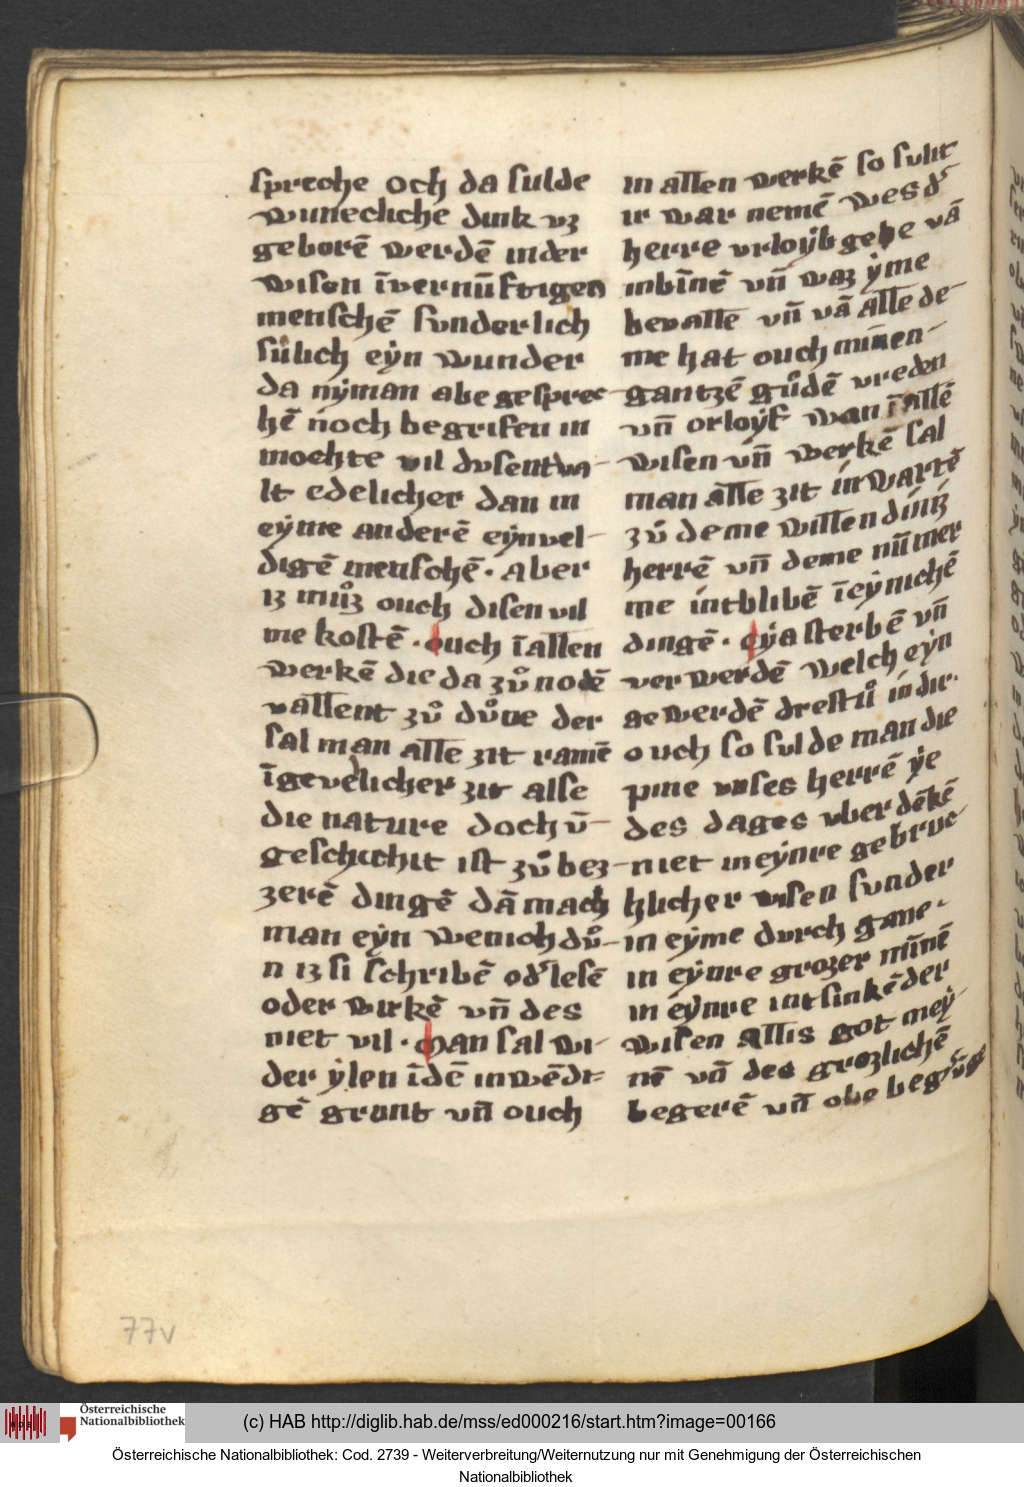 spreche och da sulde
wunecliche dink vz
geborē werdē in der
wisen īvernūftigen
menschē sunderlich
sůlich eẏn wunder
da nẏman abe gesprec
hē noch begrifen in
mochte vil dusentva-
lt edelicher dan in
eẏme anderē eẏnvel-
digē menschē · aber
iz můz ouch disen vil
me kostē · ouch ī allen
werkē die da zů nodē
vallent zů důne der
sal man alle zit ramē
ī gevelicher zit alse
die nature doch ū-
geschichit ist zů bez-
zerē dingē dā mach
man eẏn wenich dů-
n iz si schribē oď lesē
oder wirkē vn̄ des
niet vil · man sal wi-
der ẏlen ī dē inwēdi=
gē grunt vn̄ ouch
in allen werkē so sult
ir war nemē wes ď
herre vrloẏb gebe vā
inbīnē vn̄ waz ẏme
bevalle vn̄ vā alle de-
me hat ouch minen-
gantzē gůdē vreden
vn̄ orloẏf wan ī allē
wisen vn̄ werkē sal
man alle zit in wartē
zů deme willen dinz
herrē vn̄ deme nūmer
me intblibē ī eẏnichē
dingē · eẏa sterbē vn̄
verwerdē welch eẏn
gewerdē drestu in dir·
ouch so sulde man die
pine vnses herrē ẏe
des dages vberdēkē
niet in eẏnre gebruc-
hlicher wisen sunder
in eẏme durch gane-
in eẏnre grozer mīnē
in eẏnre intsinkēder
wisen allis got meẏ-
nē vn̄ des grozlichē
begerē vn̄ obe
77v
Österreichische
Nationalbibliothek
(c) HAB http://diglib.hab.de/mss/ed000216/start.htm?image=00166
Österreichische Nationalbibliothek: Cod. 2739 - Weiterverbreitung/Weiternutzung nur mit Genehmigung der Österreichischen
Nationalbibliothek